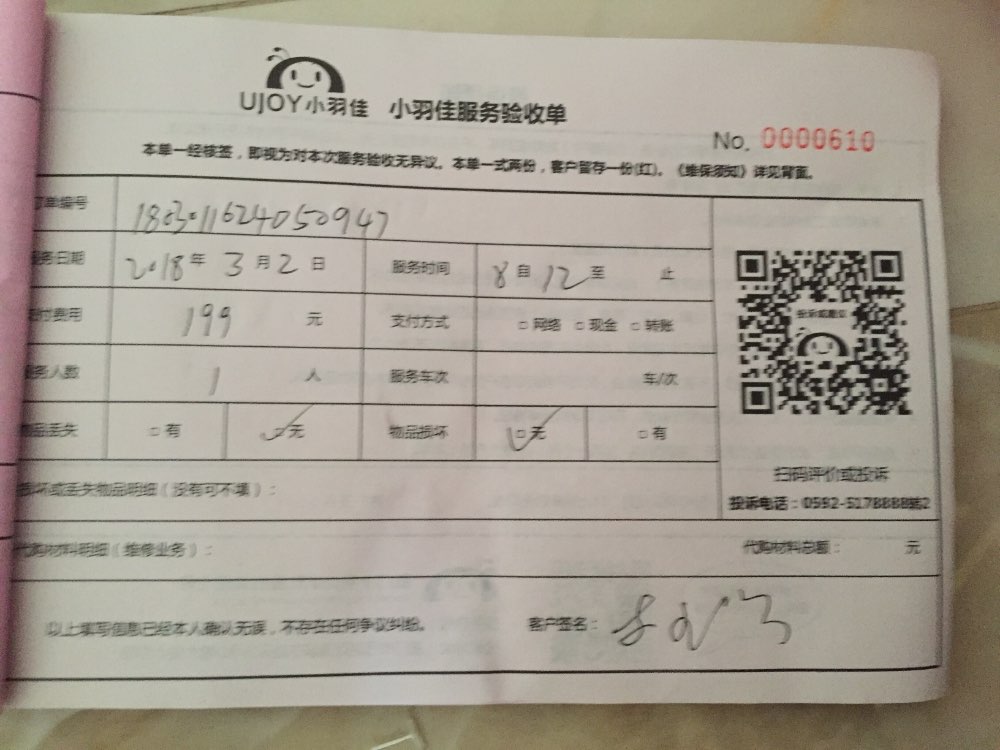 UJOY小羽佳 小羽佳服务验收单
No. 0000610
本单一经核签，即视为对本次服务验收无异议。本单一式两份，客户留存一份(红)。《维保须知》详见背面。
订单编号 1803011624050947
服务日期 2018年 3月2日 服务时间 8自12至 止
支付费用 199 元 支付方式 □网络 □现金 □转账
服务人数 1 人 服务车次 车/次
物品丢失 □有 □无 物品损坏 □无 □有
投诉或建议
扫码评价或投诉
投诉电话：0592-5178888转2
损坏或丢失物品明细（没有可不填）：
代购材料明细（维修业务）： 代购材料总额： 元
以上填写信息已经本人确认无误，不存在任何争议纠纷。 客户签名：